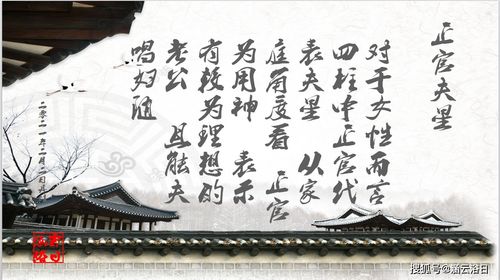 正官夫星
对于女性而言
四柱中正官代
表夫星 从家
庭角度看 正官
为用神 表示
有较为理想的
老公 且能夫
唱妇随
搜狐号@涵云洛日